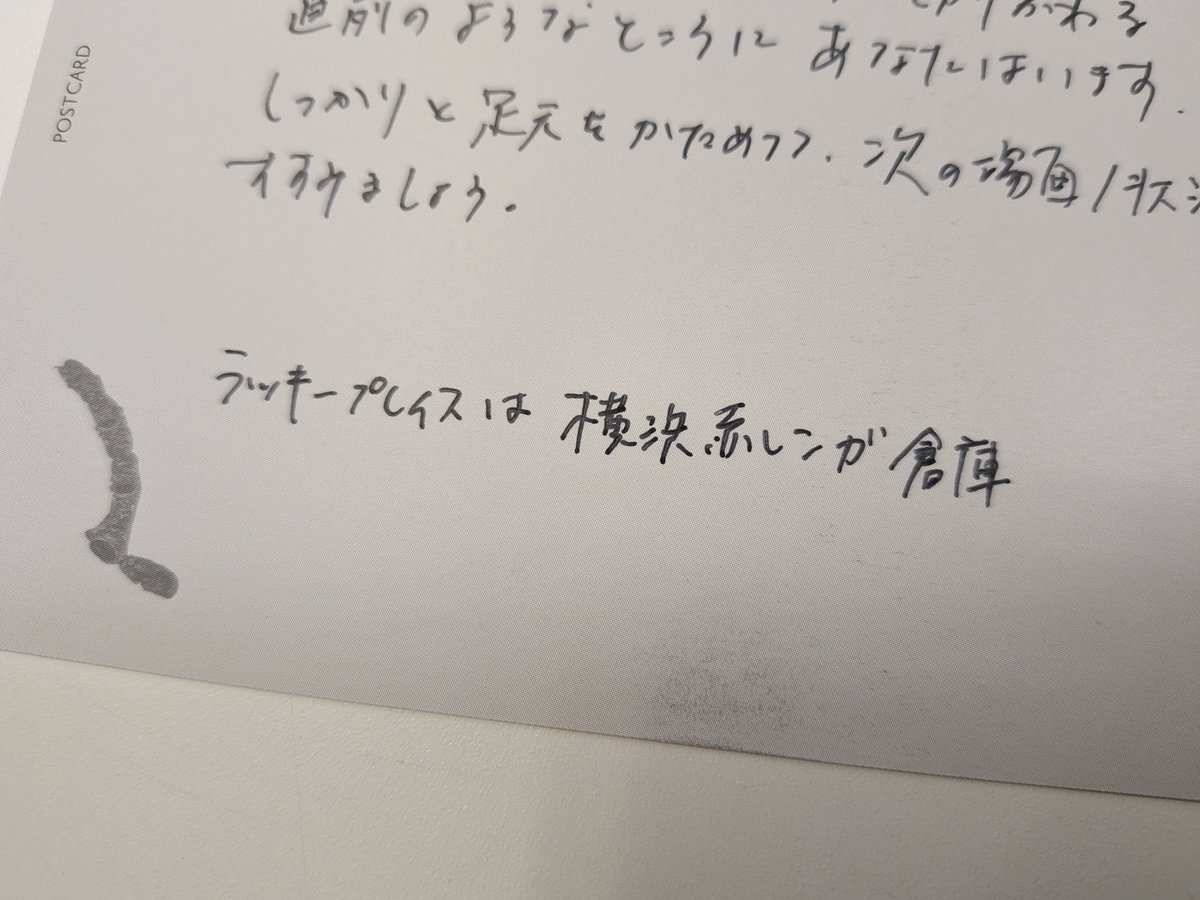 POSTCARD
かわる
直前のようなところにあなたはいます.
しっかりと足元をかためつつ. 次の場面
すすみましょう.
ラッキープレイスは横浜赤レンガ倉庫